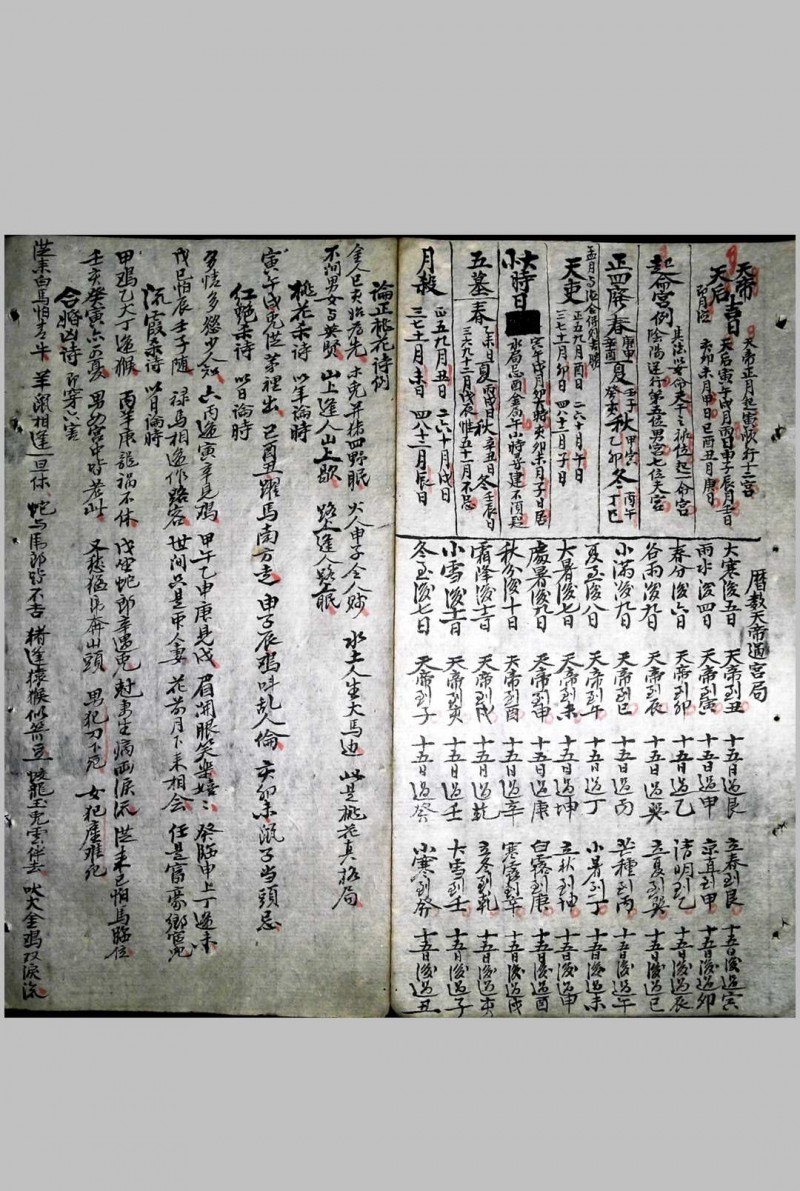 天帝 天帝正月起寅順行十二宮
天后 吉日 天后寅午戌月丙日申子辰月壬日
亥卯未月甲日巳酉丑月庚日
起命宮例
陰陽逆行第五位男宮七位天宮
正四廢 春 庚申 辛酉 夏 壬子 癸亥 秋 甲寅 乙卯 冬 丙午 丁巳
天吏 正五九月酉日 二六十月午日
三七十一月卯日 四八十二月子日
大時日 寅午戌月卯大時亥卯未月子日居
五墓 春 未日 夏 丙戌日 秋 辛丑日 冬 壬辰日
月殺 正五九月丑日 二六十月戌日
三七十一月未日 四八十二月辰日
曆數天帝過宮局
大寒後五日 天帝到丑 十五日過艮 立春到艮 十五日後過寅
雨水後四日 天帝到寅 十五日過甲 京直到甲 十五後過卯
春分後六日 天帝到卯 十五日過乙 清明到乙 十五後過辰
谷雨後九日 天帝到辰 十五日過巽 立夏到巽 十五日後過巳
小滿後九日 天帝到巳 十五日過丙 芒種到丙 十五後過午
夏至後八日 天帝到午 十五日過丁 小暑到丁 十五後過未
大暑後七日 天帝到未 十五日過坤 立秋到坤 十五後過申
處暑後九日 天帝到申 十五日過庚 白露到庚 十五日後過酉
秋分後十日 天帝到酉 十五日過辛 寒露到辛 十五後過戌
霜降後十一日 天帝到戌 十五日過乾 立冬到乾 十五日後過亥
小雪後十一日 天帝到亥 十五日過壬 大雪到壬 十五月後過子
冬至後七日 天帝到子 十五日過癸 小寒到癸 十五日後過丑
論正桃花诗例
金人巳亥始為先 木免井怯四野眠 火人申子令人 水土人生犬馬边 此是桃花真格局
不问男女与英贤 山上逢人山上歇 路上逢人路上眠
桃花杀诗 以羊論時
寅午戌兎從茅裡出 巳酉丑躍馬南方走 申子辰鸡叫乱人倫 亥卯未鼠子当頭忌
红艳杀诗 以日論時
多情多慾少人知 六丙逢寅辛見鸡 甲午乙申庚見戌 眉開眼笑樂嬉 癸臨申上丁逢未
戊己怕辰壬子随 禄馬相逢作路客 世间只是串人妻 花前月下来相会 任是富豪鄉
流霞杀诗 以日論時
甲鸡乙犬丁逢猴 丙羊庚龍禍不休 戊 蛇郎辛遇兎 生病两淚流 從来己怕馬臨位
壬亥癸寅六為憂 男如宮中 若此 奔山頭 男犯刀下死 女犯產難死
合婚凶诗 即穿六害
從来白馬怕青牛 羊鼠相逢一旦休 蛇与虎郎皆不吉 猪逢猿猴似箭 蛟龍玉兎雲作去 吠犬金鸡双淚流